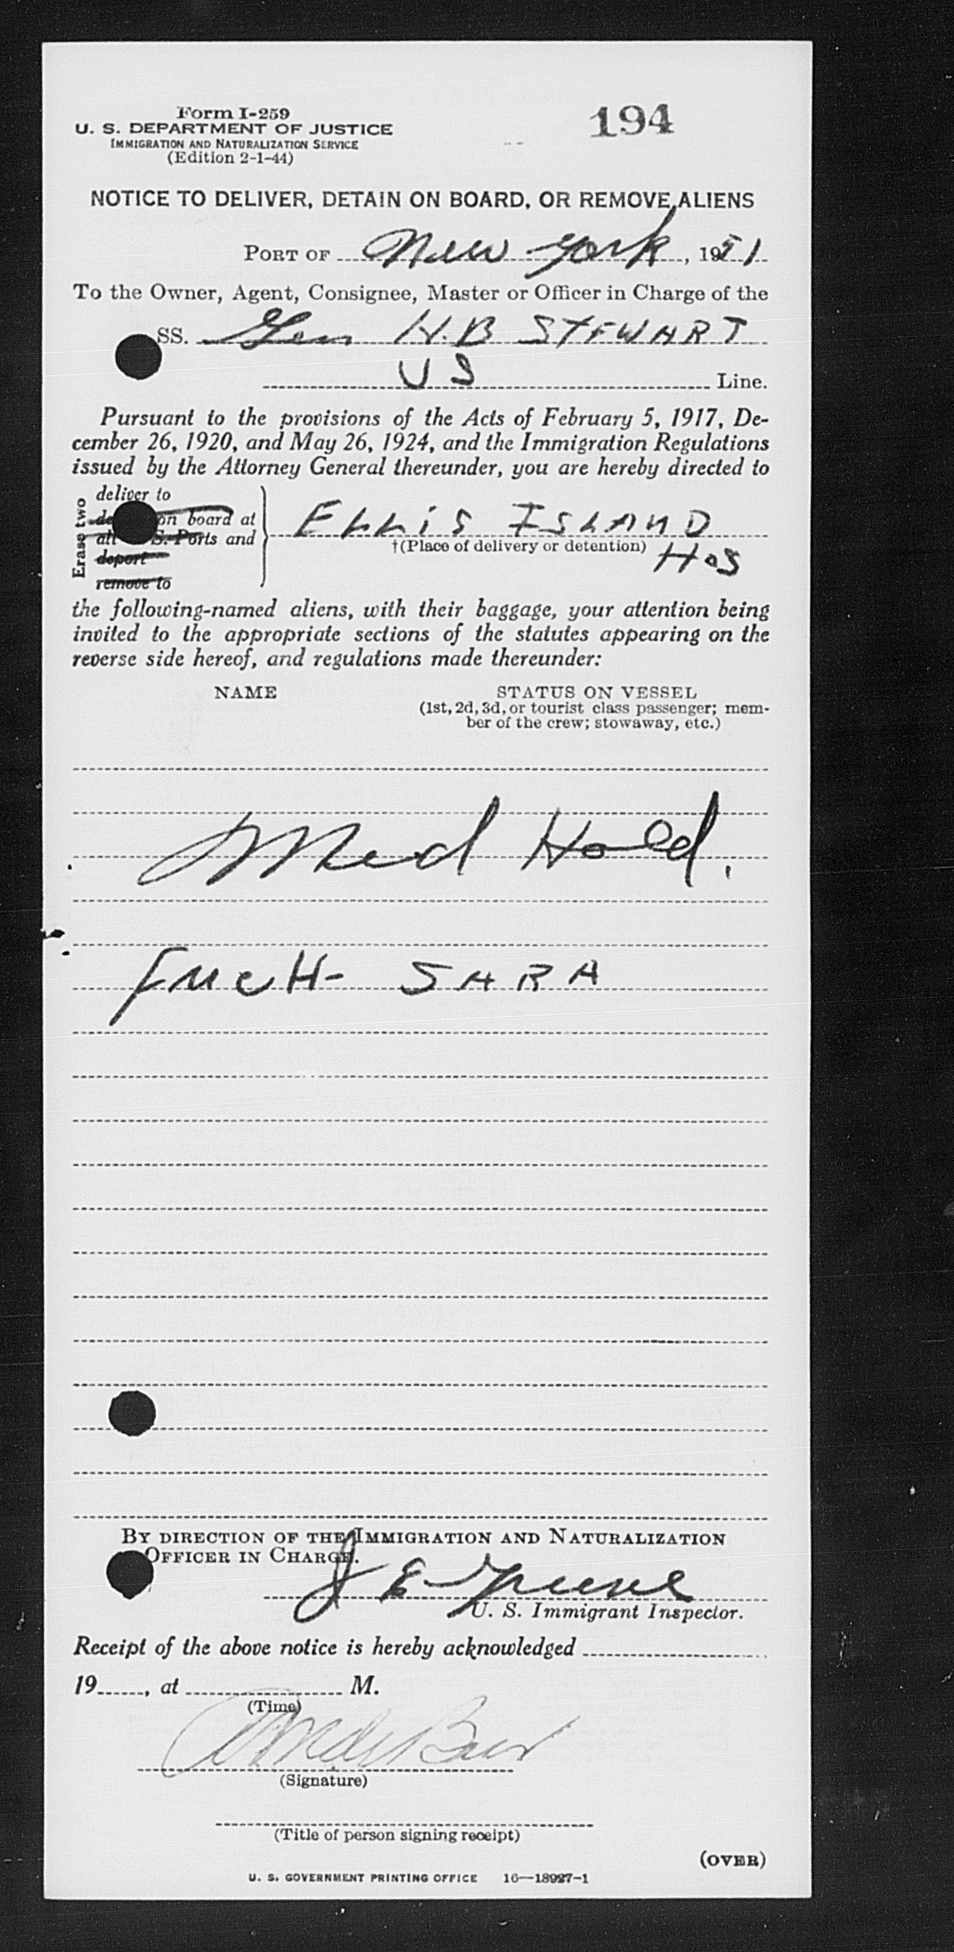 Form I-259
194
U. S. DEPARTMENT OF JUSTICE
IMMIGRATION AND NATURALIZATION SERVICE
(Edition 2-1-44)
NOTICE TO DELIVER, DETAIN ON BOARD, OR REMOVE ALIENS
PORT OF New York, 1951
To the Owner, Agent, Consignee, Master or Officer in Charge of the
SS. Gen H.B STEWART
US Line.
Pursuant to the provisions of the Acts of February 5, 1917, De-
cember 26, 1920, and May 26, 1924, and the Immigration Regulations
issued by the Attorney General thereunder, you are hereby directed to
Erase two
deliver to
on board at
all S. Ports and
deport
remove to
ELLIS ISLAND
†(Place of delivery or detention)
HOS
the following-named aliens, with their baggage, your attention being
invited to the appropriate sections of the statutes appearing on the
reverse side hereof, and regulations made thereunder:
NAME STATUS ON VESSEL
(1st, 2d, 3d, or tourist class passenger; mem-
ber of the crew; stowaway, etc.)
Med Hold.
SARA
BY DIRECTION OF THE IMMIGRATION AND NATURALIZATION
OFFICER IN CHARGE.
J E Greene
U. S. Immigrant Inspector.
Receipt of the above notice is hereby acknowledged
19, at M.
(Time)
(Signature)
(Title of person signing receipt)
(OVER)
U. S. GOVERNMENT PRINTING OFFICE 16—18927-1